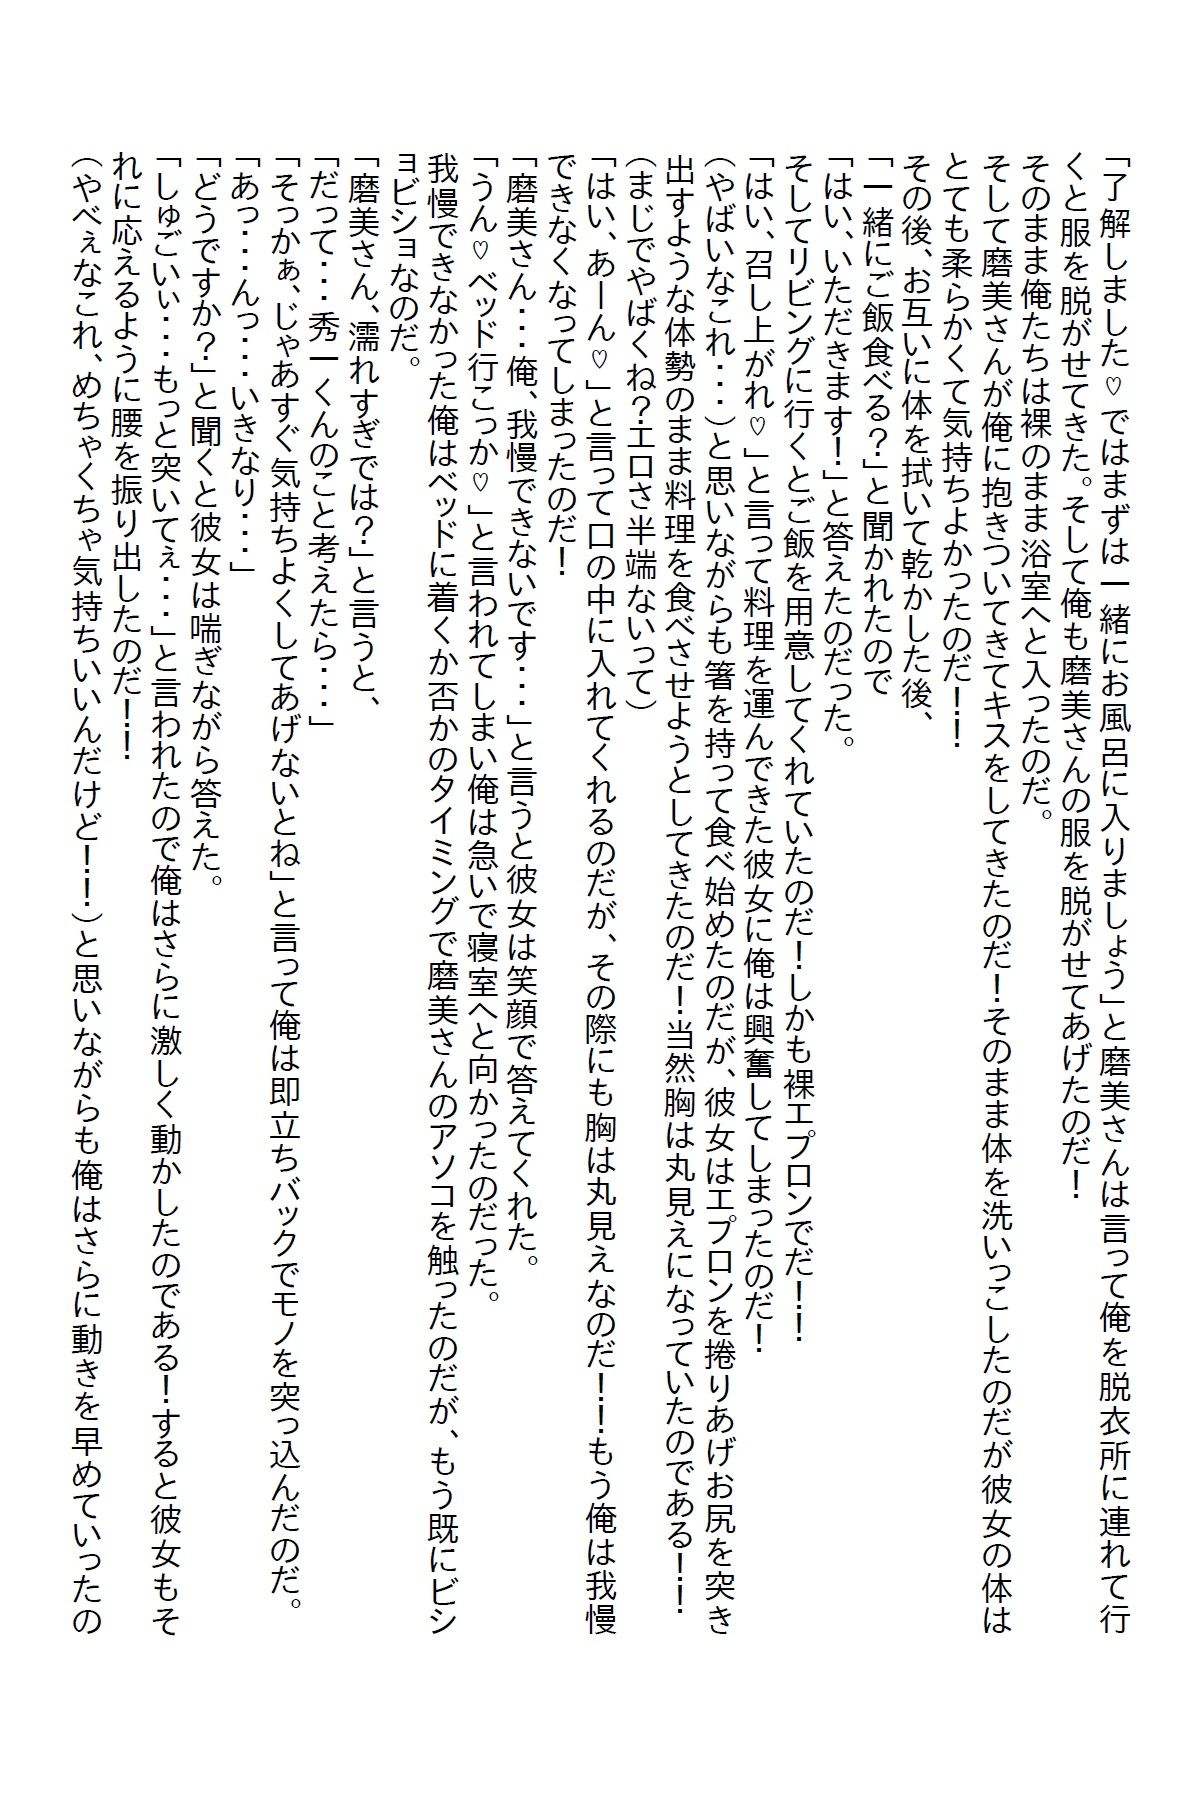 「了解しました♡ではまずは一緒にお風呂に入りましょう」と磨美さんは言って俺を脱衣所に連れて行
くと服を脱がせてきた。そして俺も磨美さんの服を脱がせてあげたのだ！
そのまま俺たちは裸のまま浴室へと入ったのだ。
そして磨美さんが俺に抱きついてきてキスをしてきたのだ！そのまま体を洗いっこしたのだが彼女の体は
とても柔らかくて気持ちよかったのだ！！
その後、お互いに体を拭いて乾かした後、
「一緒にご飯食べる？」と聞かれたので
「はい、いただきます！」と答えたのだった。
そしてリビングに行くとご飯を用意してくれていたのだ！しかも裸エプロンでだ！！
「はい、召し上がれ♡」と言って料理を運んできた彼女に俺は興奮してしまったのだ！
（やばいなこれ・・・）と思いながらも箸を持って食べ始めたのだが、彼女はエプロンを捲りあげお尻を突き
出すような体勢のまま料理を食べさせようとしてきたのだ！当然胸は丸見えになっていたのである！！
（まじでやばくね？エロさ半端ないって）
「はい、あーん♡」と言って口の中に入れてくれるのだが、その際にも胸は丸見えなのだ！！もう俺は我慢
できなくなってしまったのだ！
「磨美さん・・・俺、我慢できないです・・・」と言うと彼女は笑顔で答えてくれた。
「うん♡ベッド行こっか♡」と言われてしまい俺は急いで寝室へと向かったのだった。
我慢できなかった俺はベッドに着くか否かのタイミングで磨美さんのアソコを触ったのだが、もう既にビシ
ョビショなのだ。
「磨美さん、濡れすぎでは？」と言うと、
「だって・・・秀一くんのこと考えたら・・・」
「そっかぁ、じゃあすぐ気持ちよくしてあげないとね」と言って俺は即立ちバックでモノを突っ込んだのだ。
「あっ・・・んっ・・・いきなり・・・」
「どうですか？」と聞くと彼女は喘ぎながら答えた。
「しゅごいぃ・・・もっと突いてぇ・・・」と言われたので俺はさらに激しく動かしたのである！すると彼女もそ
れに応えるように腰を振り出したのだ！！
（やべぇなこれ、めちゃくちゃ気持ちいいんだけど！！）と思いながらも俺はさらに動きを早めていったの